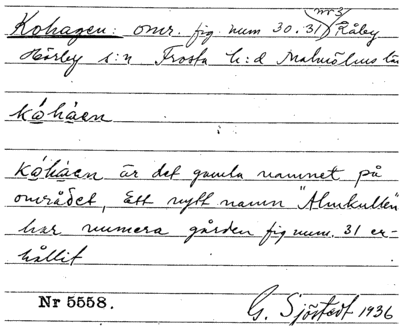 Kohagen: omr. fig. num 30.31 (nr 3) Råby
Hörby s:n Frosta h:d Malmöhus län
kóháen
Kóháen är det gamla namnet på
området, Ett nytt namn "Almkullen"
har numera gården fig num. 31 er-
hållit
Nr 5558. G. Sjöstedt 1936